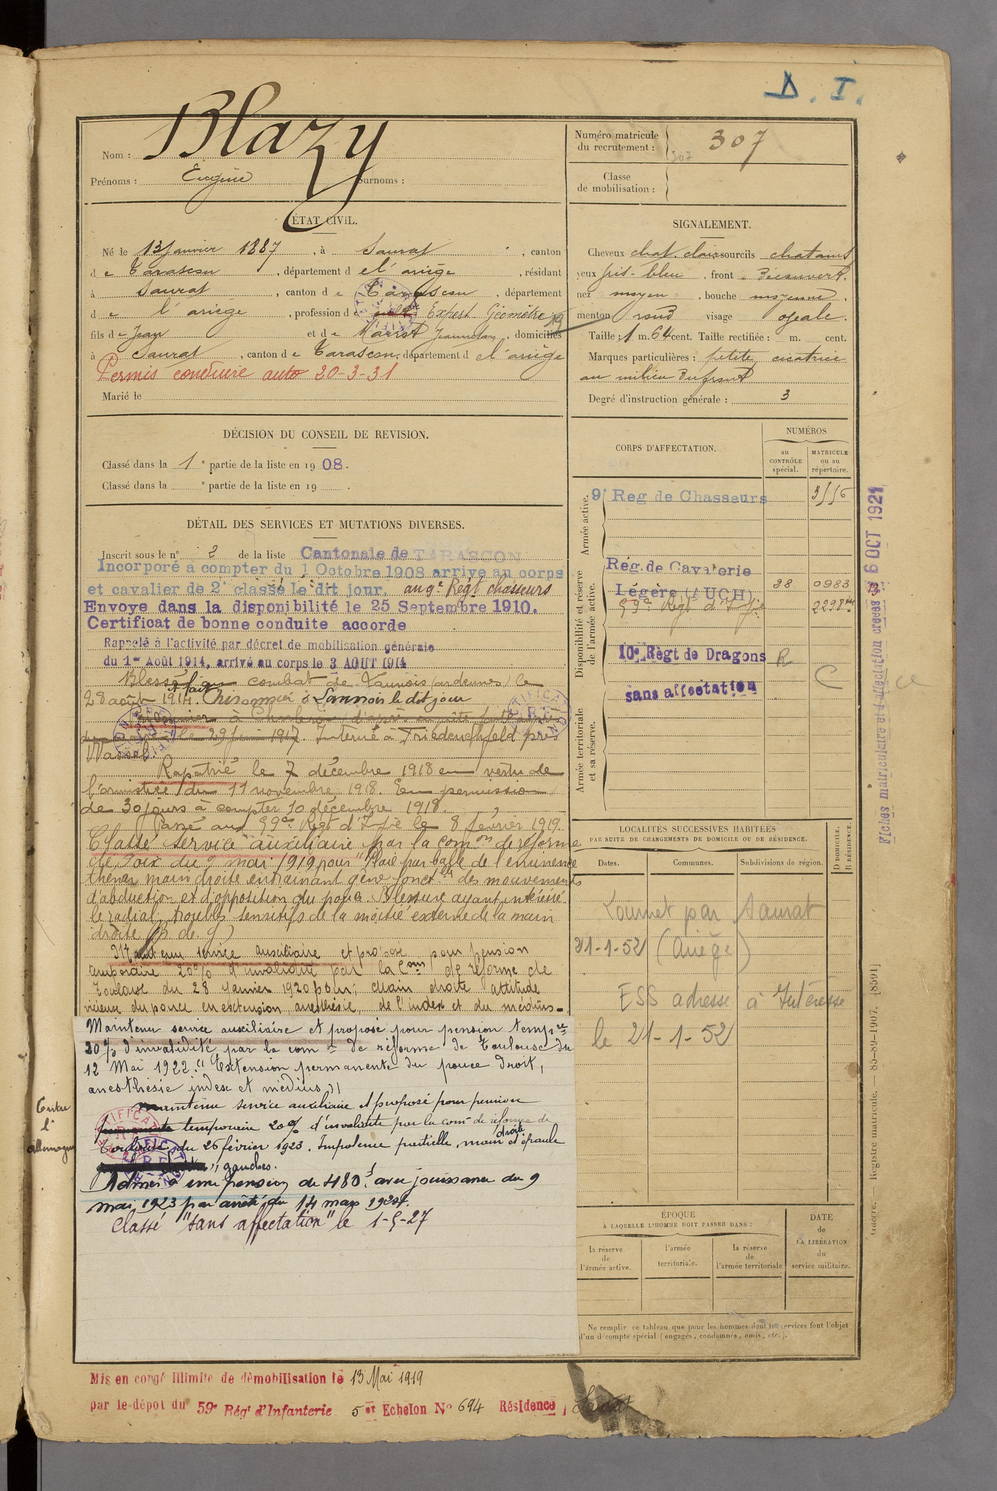 D. I.
Nom : Blazy
Prénoms : Eugène Surnoms :
ÉTAT CIVIL.
Né le 13 Janvier 1887, à Saurat, canton
de Tarascon, département de l'ariège, résidant
à Saurat, canton de Tarascon, département
de l'ariège, profession de Expert Géomètre
fils de Jean et de domiciliés
à Saurat, canton de Tarascon, département de l'ariège
Permis conduire auto 20-3-31
Marié le
DÉCISION DU CONSEIL DE REVISION.
Classé dans la 1e partie de la liste en 1908.
Classé dans la e partie de la liste en 19 .
DÉTAIL DES SERVICES ET MUTATIONS DIVERSES.
Inscrit sous le n° 2 de la liste Cantonale de TARASCON
Incorporé à compter du 1 Octobre 1908 arrive au corps
et cavalier de 2e classé le dit jour. au 9e Régt chasseurs
Envoye dans la disponibilité le 25 Septembre 1910.
Certificat de bonne conduite accorde
Rappelé à l'activité par décret de mobilisation générale
du 1er Août 1914, arrivé au corps le 3 AOUT 1914
Blessé au combat de Launois (ardennes) le
28 août 1914. fait Prisonnier à Launois le dit jour
le 29 juin 1917. Interné à Friedrichsfeld près
Wassel
Rapatrié le 7 décembre 1918 en vertu de
l'armistice du 11 novembre 1918. En permission
de 30 jours à compter 10 décembre 1918.
Passé au 59e Régt d'Infie le 8 février 1919.
Classé service auxiliaire par la comon de réforme
de Foix du 9 mai 1919 pour "Plaie par balle de l'éminence
thénar main droite entrainant gêne fonctlle des mouvements
d'abduction et d'opposition du pouce. Blessure ayant intéressé
le radial, troubles sensitifs de la moitié externe de la main
droite (B. de g)
Maintenu service auxiliaire et proposé pour pension
temporaire 20% d'invalidité par la Comon de réforme de
Toulouse du 28 Janvier 1920 pour, main droite attitude
vicieuse du pouce en extension, anesthésie de l'index et du médius
Maintenu service auxiliaire et proposé pour pension tempre
20% d'invalidité par la comon de réforme de Toulouse du
12 Mai 1922. "Extension permanente du pouce droit,
anesthésie index et médius"
maintenu service auxiliaire et proposé pour pension
temporaire 20% d'invalidité par la comon de réforme de
Toulouse du 26 février 1923. Impotence partielle, main droite et épaule
gauches.
Admis à une pension de 480f avec jouissance du 9
mai 1923 par arrêté du 14 mars 1924.
Classé "sans affectation" le 1-5-27
Contre
l'
allemagne
Mis en congé illimité de démobilisation le 13 Mai 1919
par le dépôt du 59e Régt d'Infanterie 5er Echelon No 694 Résidence
Numéro matricule
du recrutement : 307
307
Classe
de mobilisation :
SIGNALEMENT.
Cheveux chat. clair sourcils chatains
yeux gris-bleu, front Découvert,
nez moyen, bouche moyenne,
menton rond visage ovale.
Taille : 1 m. 64 cent. Taille rectifiée : m. cent.
Marques particulières : petite cicatrice
au milieu du front
Degré d'instruction générale : 3
CORPS D'AFFECTATION.
NUMÉROS
au CONTRÔLE spécial.
MATRICULE ou au répertoire.
Armée active.
9e Reg de Chasseurs
Disponibilité et réserve de l'armée active.
Rég. de Cavalerie 38 0983
Légère (AUCH)
59e Regt d'Infie
10e Régt de Dragons R
sans affectation C
Armée territoriale et sa réserve.
LOCALITÉS SUCCESSIVES HABITÉES
PAR SUITE DE CHANGEMENTS DE DOMICILE OU DE RÉSIDENCE.
Dates. Communes. Subdivisions de région.
D DOMICILE.
R RÉSIDENCE.
Lournet par Saurat
21-1-52 (Ariège)
ESS adressé à Intéressé
le 21-1-52
ÉPOQUE
À LAQUELLE L'HOMME DOIT PASSER DANS :
la réserve de l'armée active.
l'armée territoriale.
la réserve de l'armée territoriale
DATE
de
LA LIBÉRATION
du
service militaire.
Ne remplir ce tableau que pour les hommes dont les services font l'objet
d'un décompte spécial (engagés, condamnés, omis, etc.).
Fiches matriculaire et d'affectation créées le 6 OCT 1921
Guerre. — Registre matricule. — 85-89-1907. [8591]